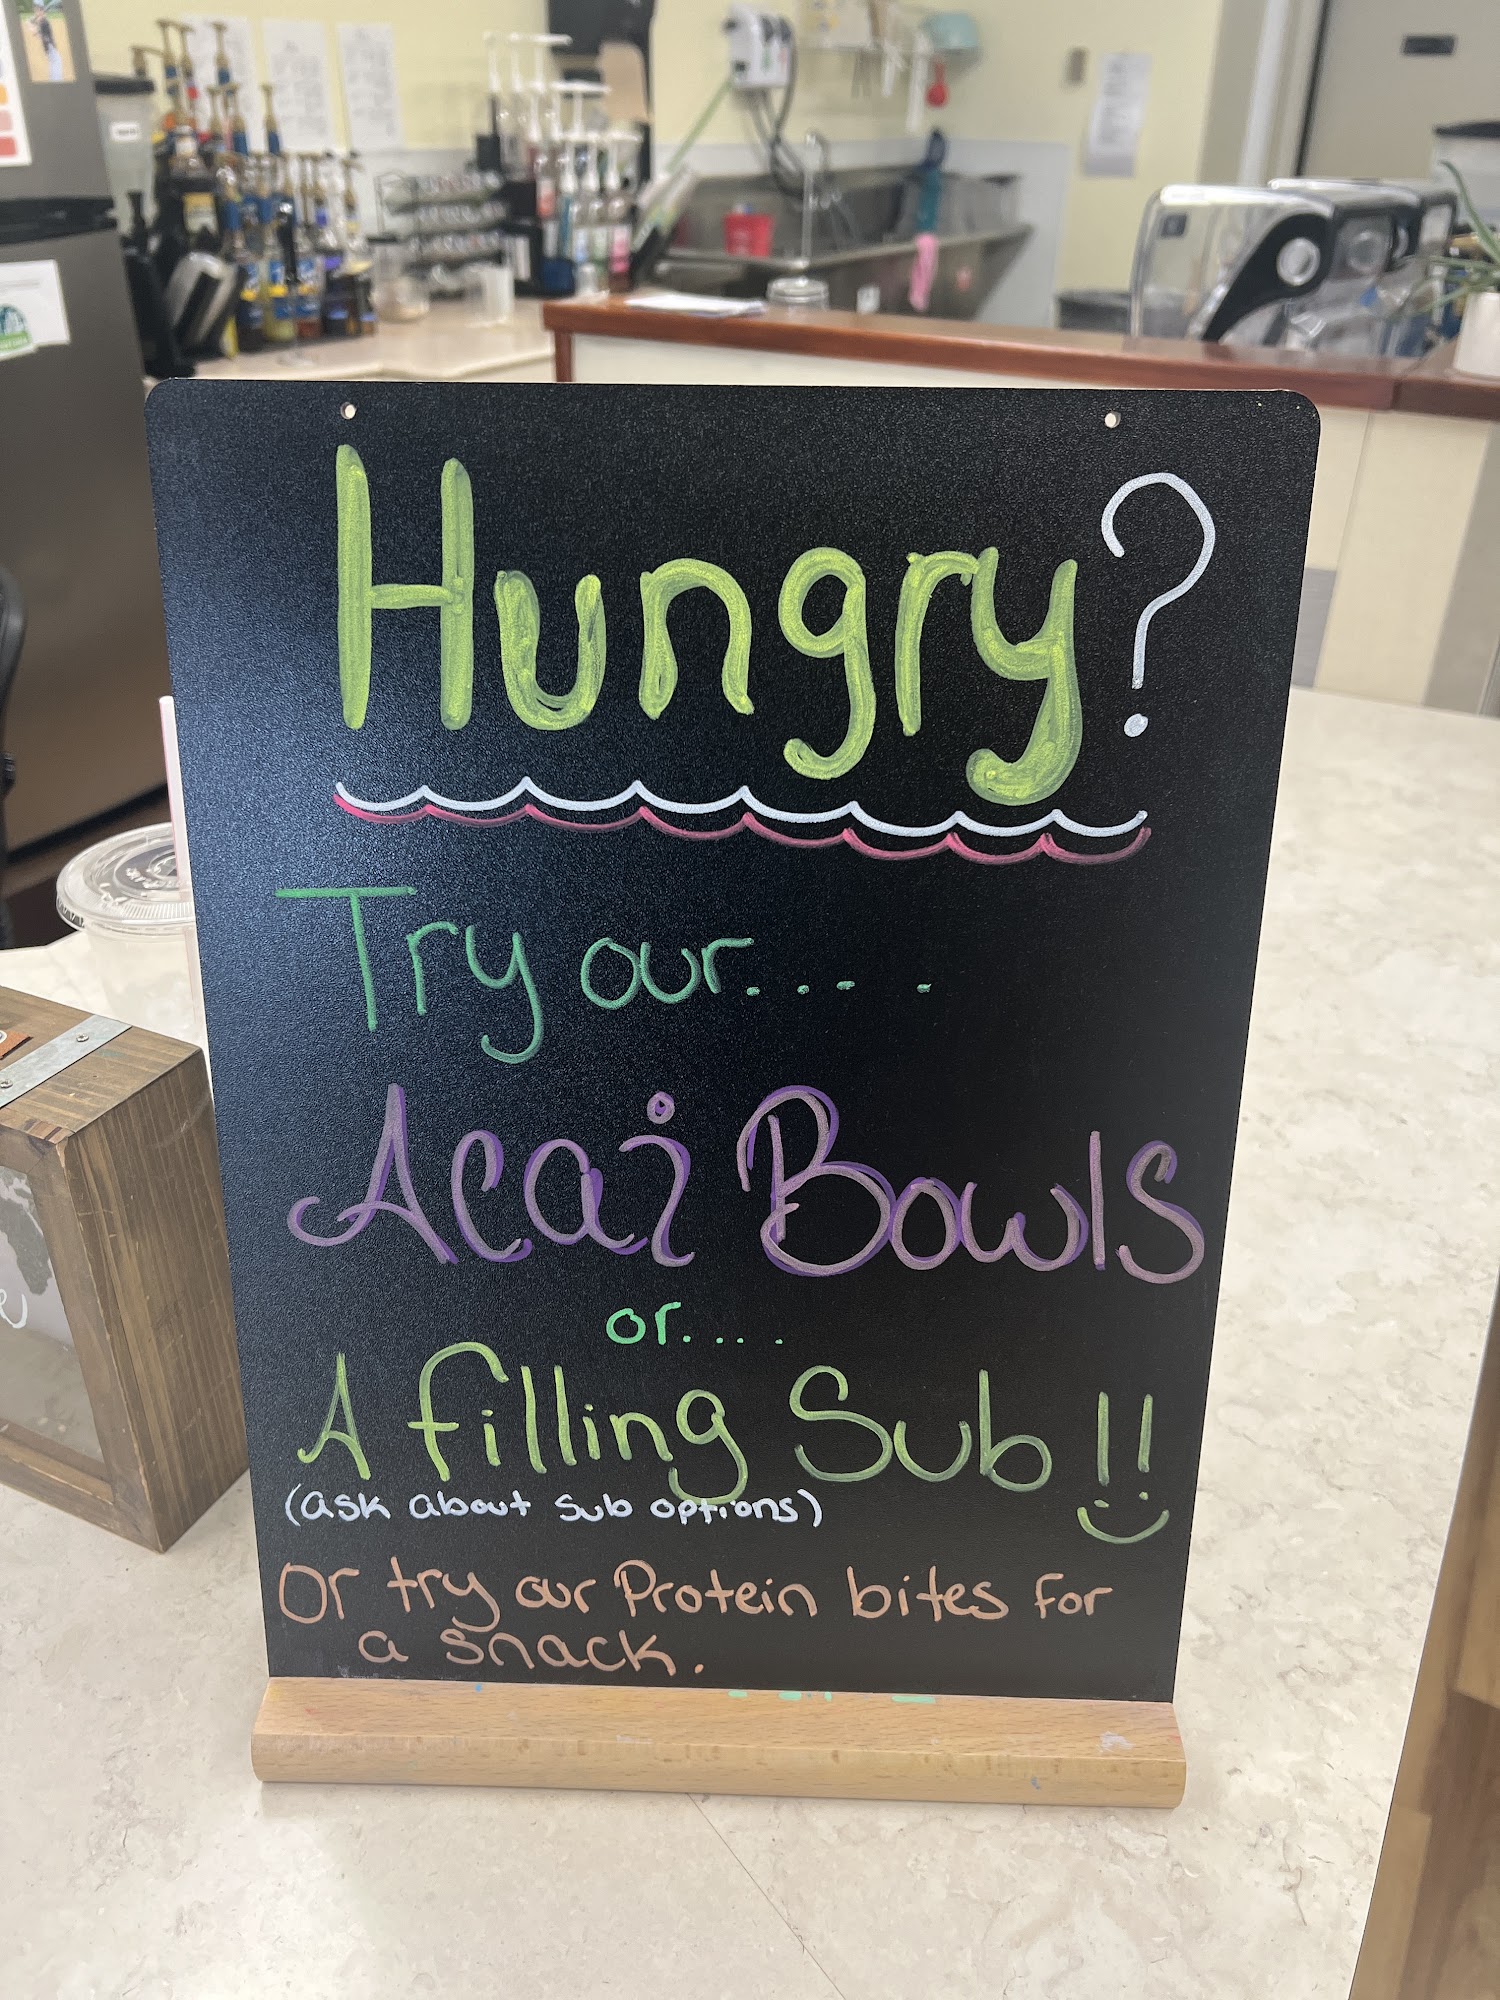 Hungry?
Try our....
Acai Bowls
or....
A filling Sub!!
(ask about sub options)
Or try our Protein bites for
a snack.